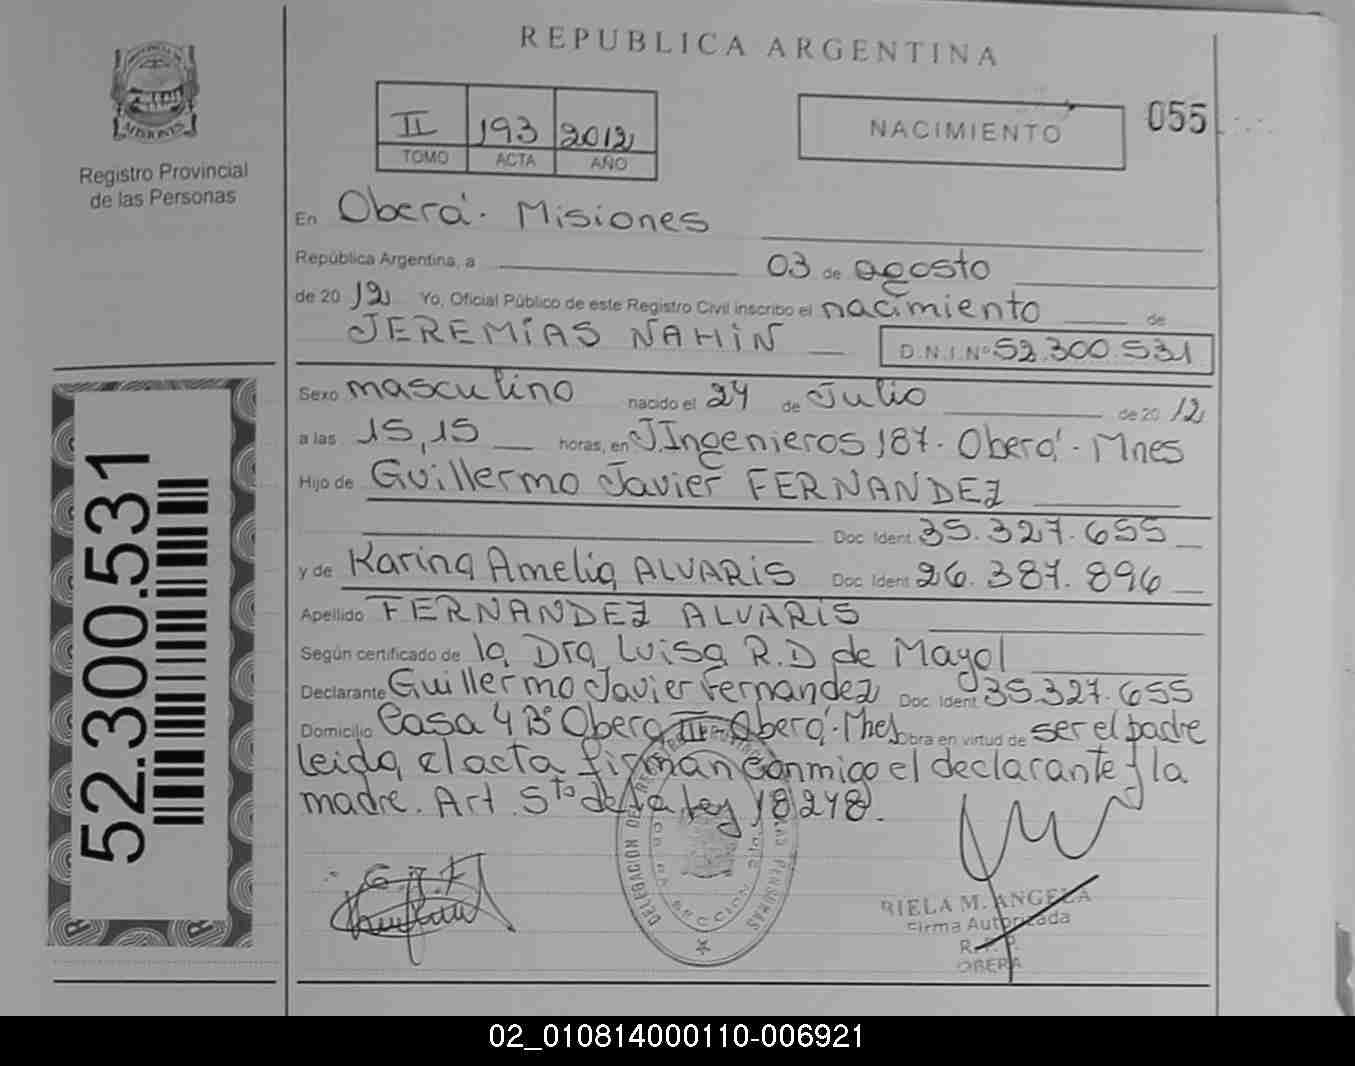 REPUBLICA ARGENTINA
MISIONES
Registro Provincial
de las Personas
II 193 2012
TOMO ACTA AÑO
NACIMIENTO
055
En Oberá. Misiones
República Argentina, a 03 de agosto
de 20 12 Yo, Oficial Público de este Registro Civil inscribo el nacimiento de
JEREMÍAS NAHIN D.N.I.Nº 52.300.531
Sexo masculino nacido el 24 de Julio de 20 12
a las 15,15 horas, en J.Ingenieros 187. Oberá. Mnes
Hijo de Guillermo Javier FERNANDEZ
Doc Ident. 35.327.655
y de Karina Amelia ALVARIS Doc Ident 26.387.896
Apellido FERNANDEZ ALVARIS
Según certificado de la Dra Luisa R.D de Mayol
Declarante Guillermo Javier Fernandez Doc Ident 35.327.655
Domicilio Casa 4 Bº Obera III Oberá. Mnes Obra en virtud de ser el padre
leida el acta firman conmigo el declarante y la
madre. Art. 5to de la Ley 18248.
52.300.531
G.J.F
DELEGACION DEL REGISTRO PROVINCIAL
RIELA M. ANGELA
Firma Autorizada
R.P.P.
OBERA
02_010814000110-006921